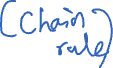 (Chain
rule)